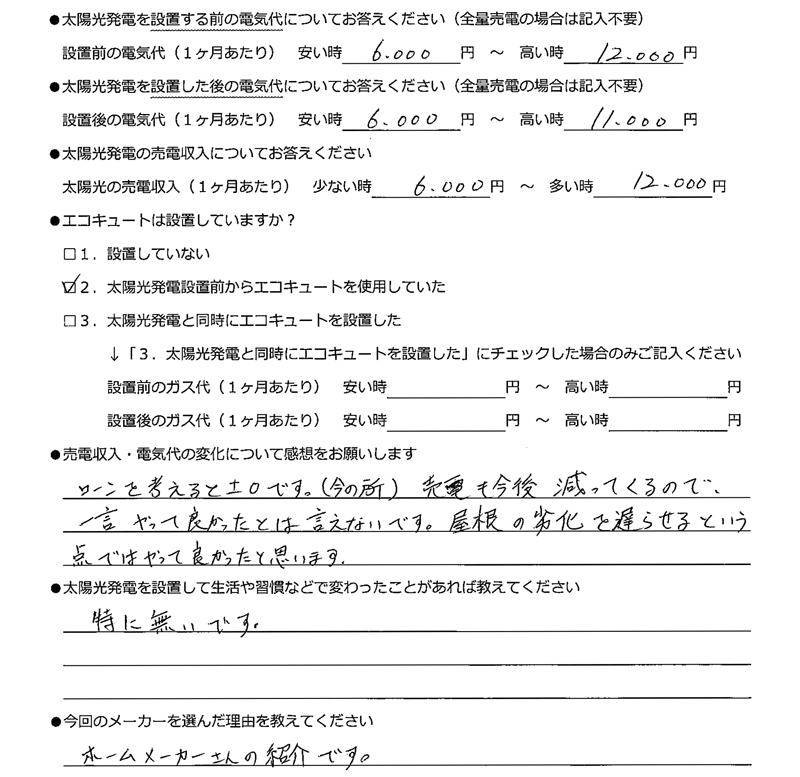 ●太陽光発電を設置する前の電気代についてお答えください（全量売電の場合は記入不要）
設置前の電気代（1ヶ月あたり） 安い時 6.000 円 ～ 高い時 12.000 円
●太陽光発電を設置した後の電気代についてお答えください（全量売電の場合は記入不要）
設置後の電気代（1ヶ月あたり） 安い時 6.000 円 ～ 高い時 11.000 円
●太陽光発電の売電収入についてお答えください
太陽光の売電収入（1ヶ月あたり） 少ない時 6.000 円 ～ 多い時 12.000 円
●エコキュートは設置していますか？
□1．設置していない
☑2．太陽光発電設置前からエコキュートを使用していた
□3．太陽光発電と同時にエコキュートを設置した
↓「3．太陽光発電と同時にエコキュートを設置した」にチェックした場合のみご記入ください
設置前のガス代（1ヶ月あたり） 安い時 円 ～ 高い時 円
設置後のガス代（1ヶ月あたり） 安い時 円 ～ 高い時 円
●売電収入・電気代の変化について感想をお願いします
ローンを考えると±0です。（今の所） 売電も今後 減ってくるので、
一言 やって良かったとは言えないです。屋根の劣化を遅らせるという
点ではやって良かったと思います。
●太陽光発電を設置して生活や習慣などで変わったことがあれば教えてください
特に無いです。
●今回のメーカーを選んだ理由を教えてください
ホームメーカーさんの紹介です。